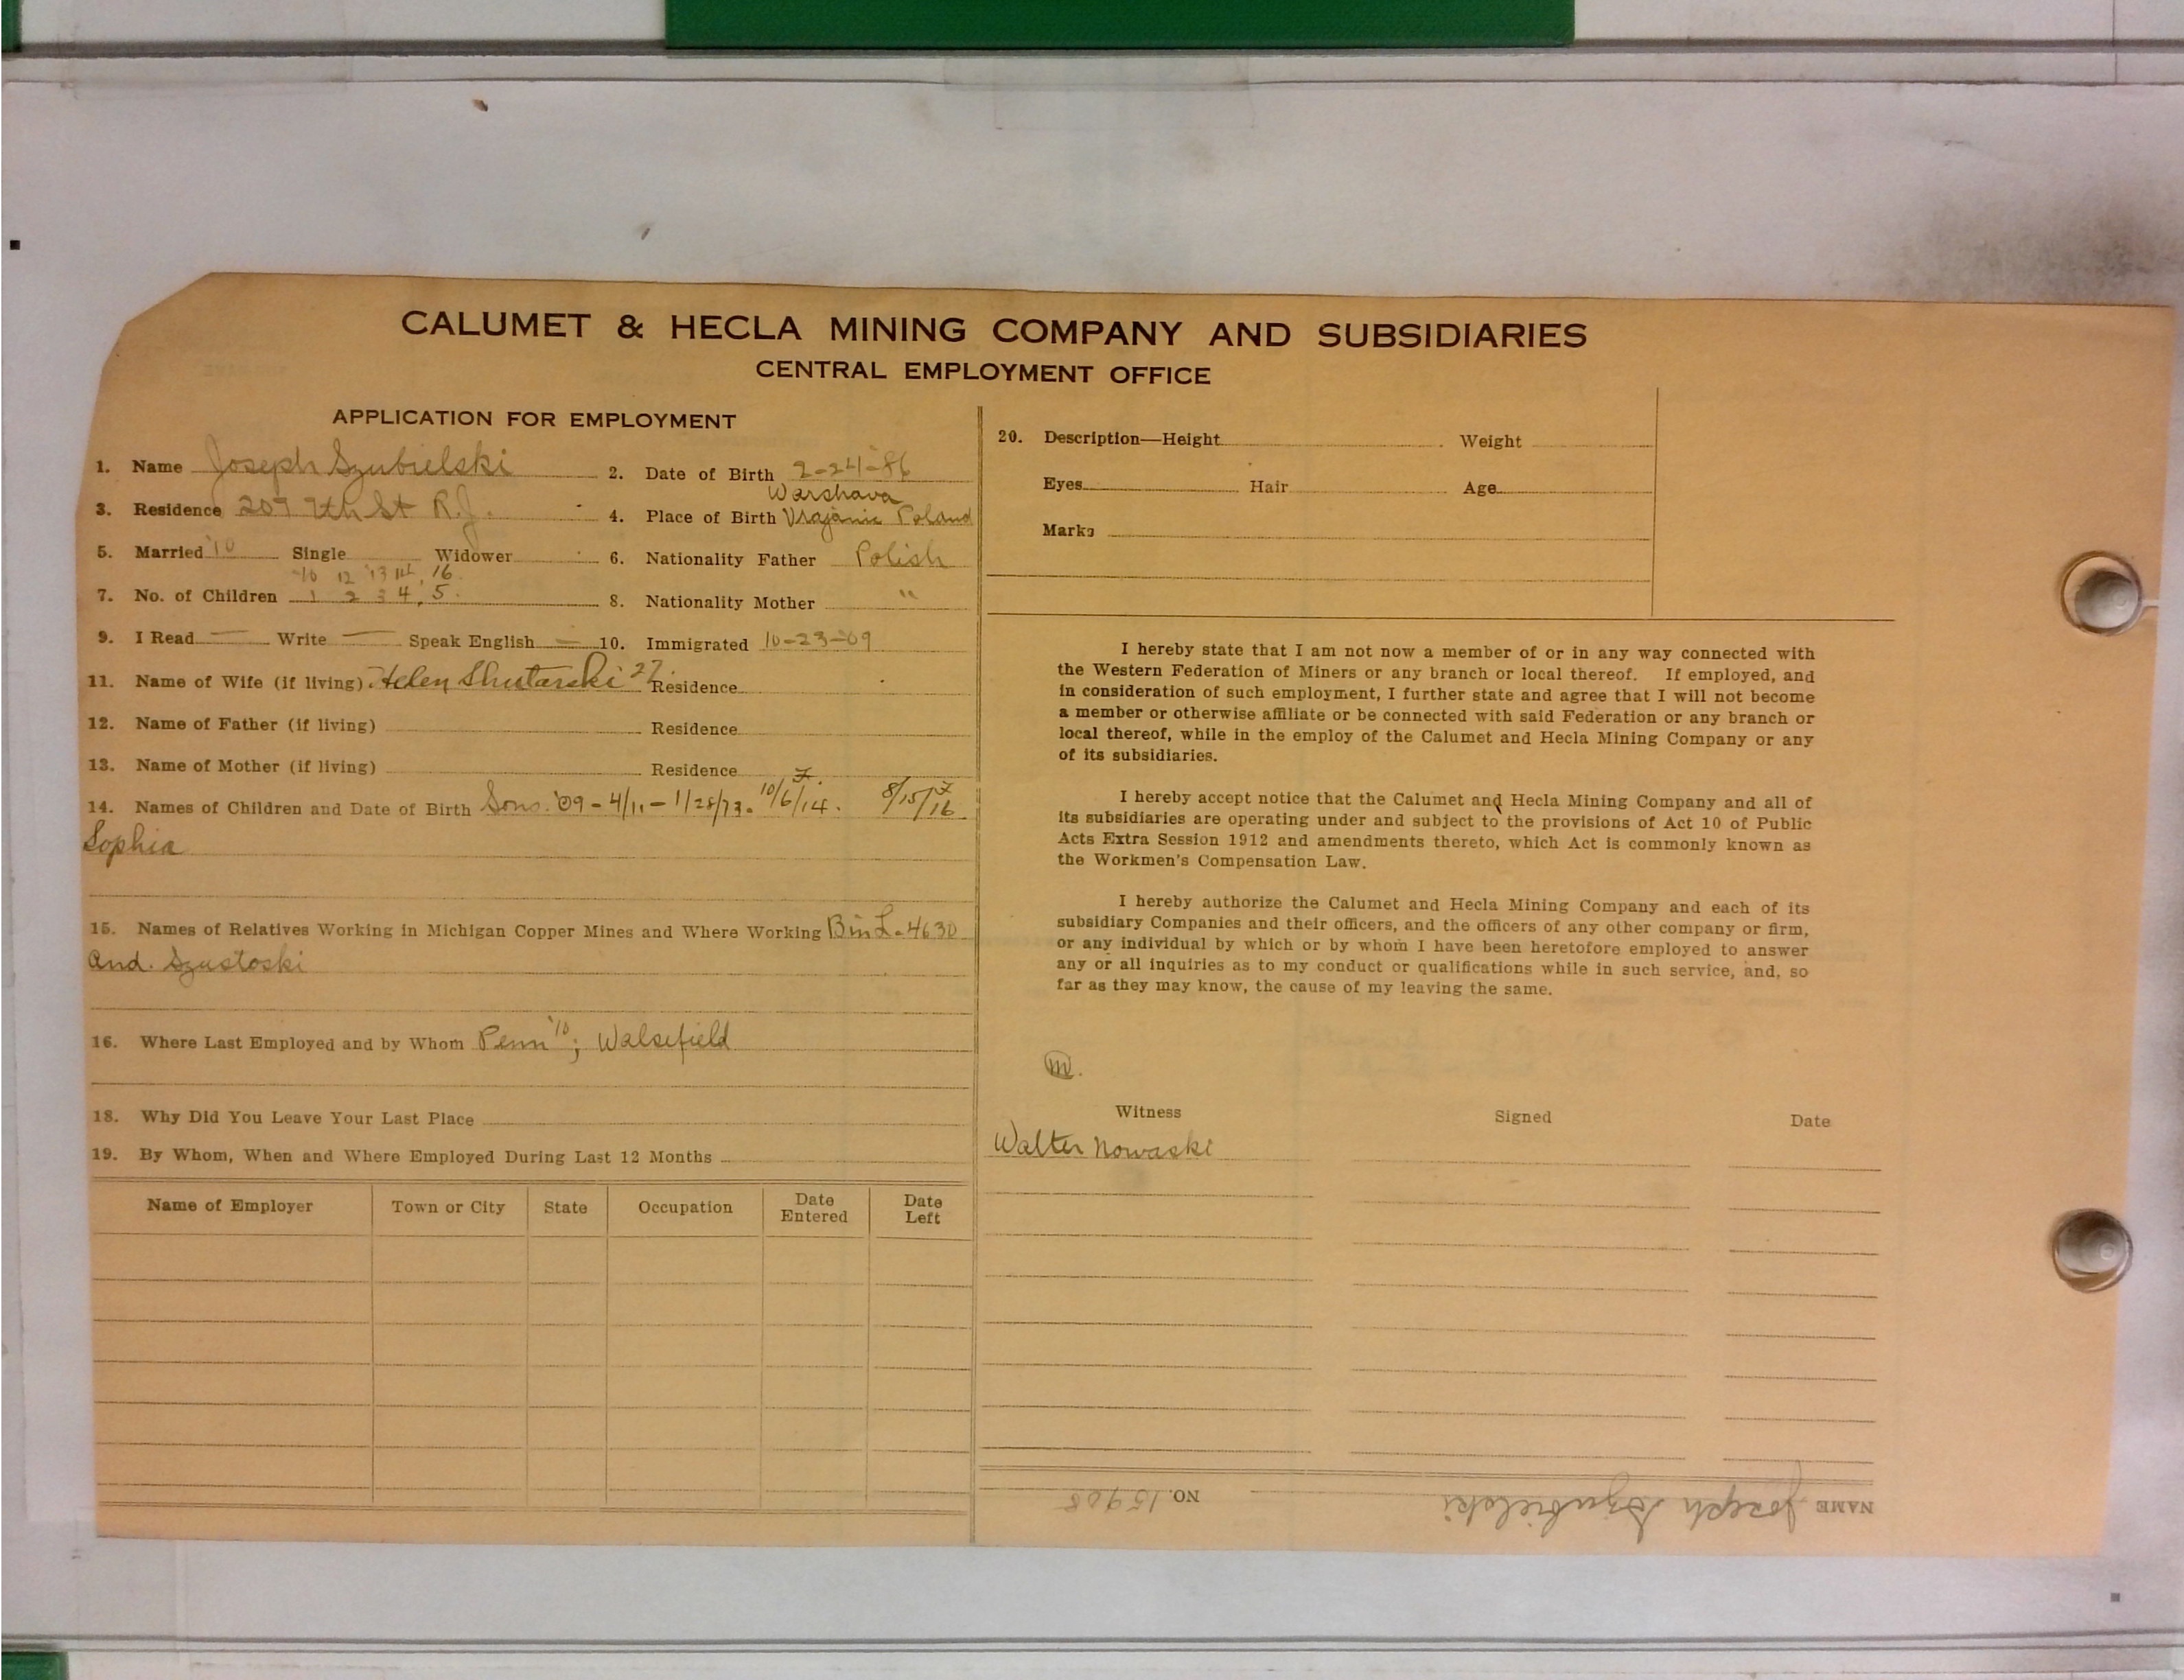 CALUMET & HECLA MINING COMPANY AND SUBSIDIARIES
CENTRAL EMPLOYMENT OFFICE
APPLICATION FOR EMPLOYMENT
1. Name Joseph Szubielski 2. Date of Birth 2-24-86
Warshava
3. Residence 209 7th St R.J. 4. Place of Birth Poland
5. Married '10 Single Widower 6. Nationality Father Polish
'10 12 '13 14, 16.
7. No. of Children 1 2 3 4, 5. 8. Nationality Mother "
9. I Read — Write — Speak English — 10. Immigrated 10-23-09
11. Name of Wife (if living) Helen Shutarski 27. Residence
12. Name of Father (if living) Residence
13. Name of Mother (if living) Residence
14. Names of Children and Date of Birth Sons. '09 - 4/11 - 1/28/13. 10/6/14. 8/15/16
Sophia
15. Names of Relatives Working in Michigan Copper Mines and Where Working Bin L-4630
And. Szustoski
16. Where Last Employed and by Whom Penn '10; Walsefield
18. Why Did You Leave Your Last Place
19. By Whom, When and Where Employed During Last 12 Months
Name of Employer Town or City State Occupation Date Entered Date Left
20. Description—Height Weight
Eyes Hair Age
Marks
I hereby state that I am not now a member of or in any way connected with
the Western Federation of Miners or any branch or local thereof. If employed, and
in consideration of such employment, I further state and agree that I will not become
a member or otherwise affiliate or be connected with said Federation or any branch or
local thereof, while in the employ of the Calumet and Hecla Mining Company or any
of its subsidiaries.
I hereby accept notice that the Calumet and Hecla Mining Company and all of
its subsidiaries are operating under and subject to the provisions of Act 10 of Public
Acts Extra Session 1912 and amendments thereto, which Act is commonly known as
the Workmen's Compensation Law.
I hereby authorize the Calumet and Hecla Mining Company and each of its
subsidiary Companies and their officers, and the officers of any other company or firm,
or any individual by which or by whom I have been heretofore employed to answer
any or all inquiries as to my conduct or qualifications while in such service, and, so
far as they may know, the cause of my leaving the same.
M.
Witness Signed Date
Walter Nowaski
NAME Joseph Szubielski NO. 15908